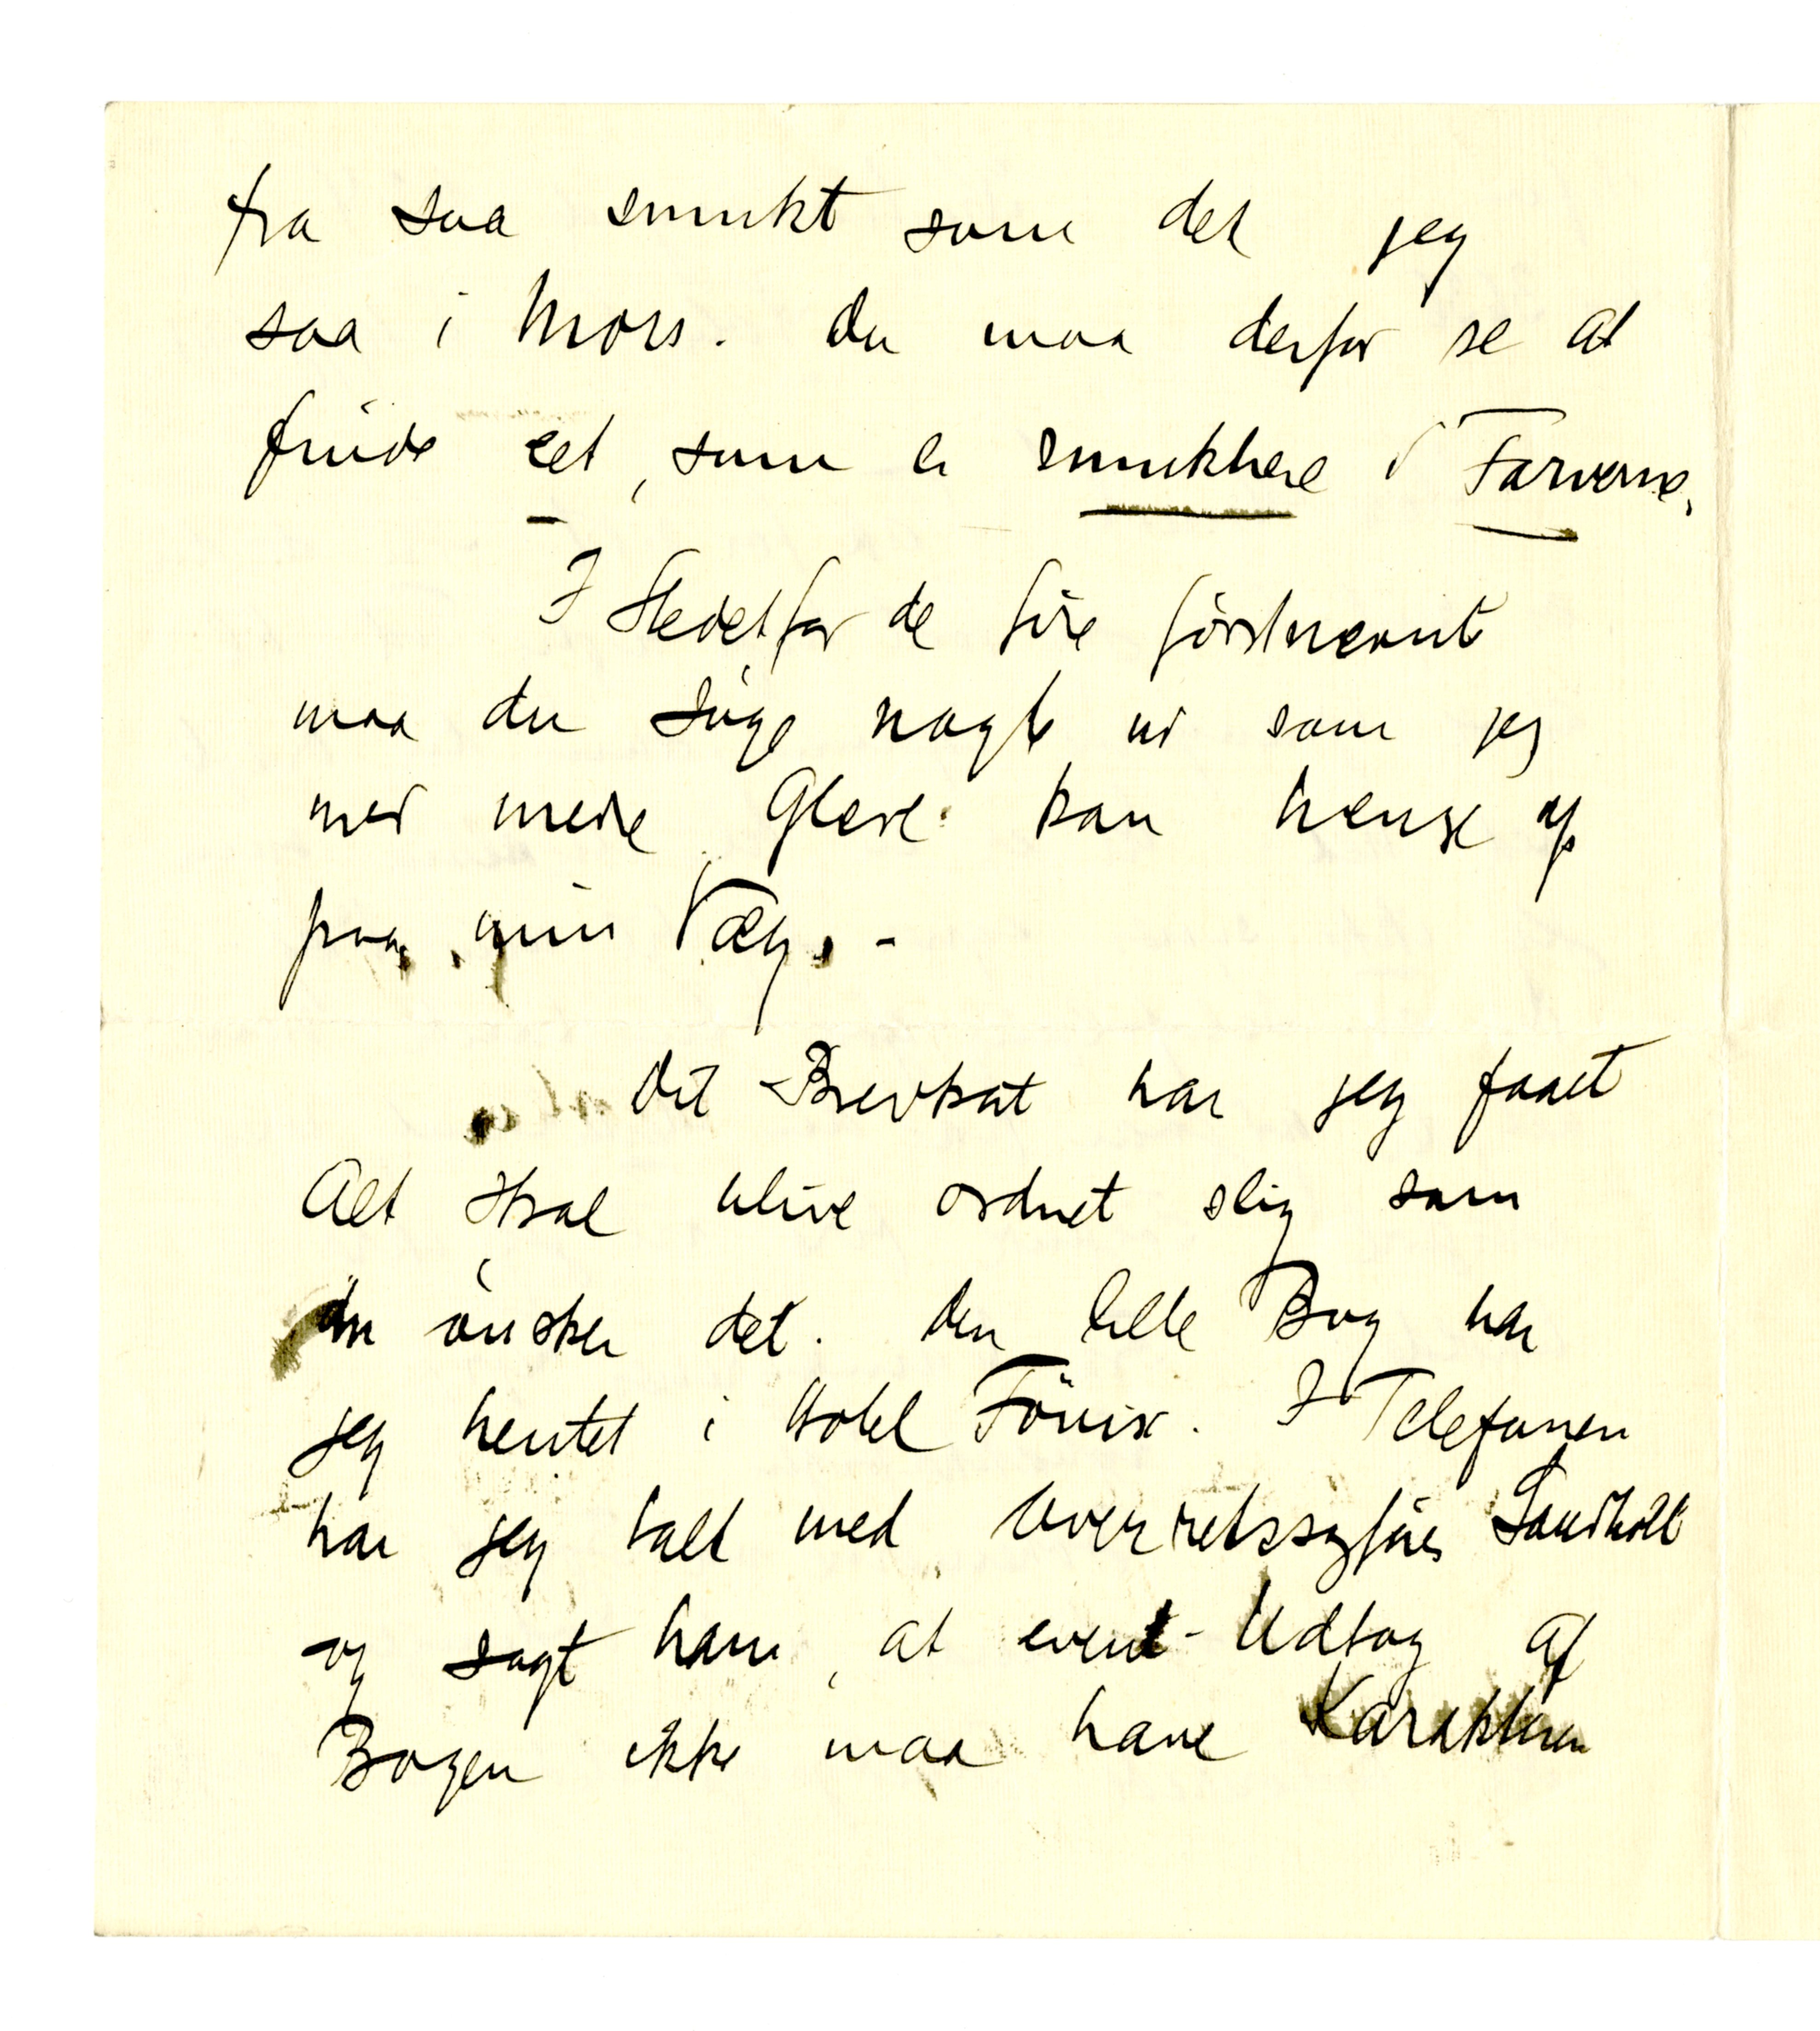 fra saa smukt som det jeg
saa i Mors. Du maa derfor se at
finde eet, som er smukkere i Farverne.
I Stedetfor de fire förstnævnte
maa du söge nogle ud som jeg
med mere Glæde kan hænge op
paa min Væg. -
Dit Brevkort har jeg faaet
Alt skal blive ordnet slig som
du önsker det. Den lille Bog har
jeg hentet i Hotel Fönix. I Telefonen
har jeg talt med Overretssagförer
og sagt ham, at event- Udtog af
Bogen ikke maa have Karakteren